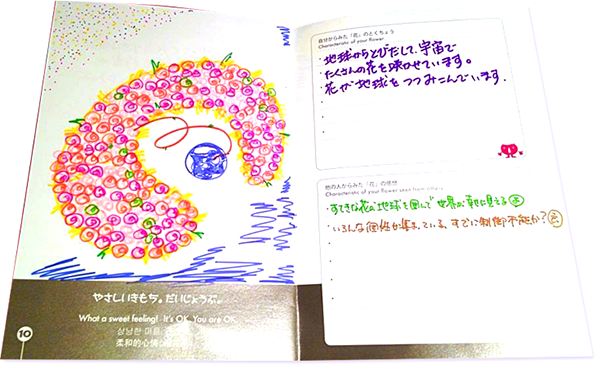 やさしいきもち。だいじょうぶ。
What a sweet feeling! It's OK. You are OK.
상냥한 마음
柔和的心情
10
自分からみた「花」のとくちょう
Characteristic of your flower
・地球からとびだして、宇宙で
たくさんの花を咲かせています。
・花が地球をつつみこんでいます.
他の人からみた「花」の感想
Characteristic of your flower seen from others
・すてきな花が地球を囲んで世界が幸せに見える
・いろんな個性が集まっている、すでに制御不能か?